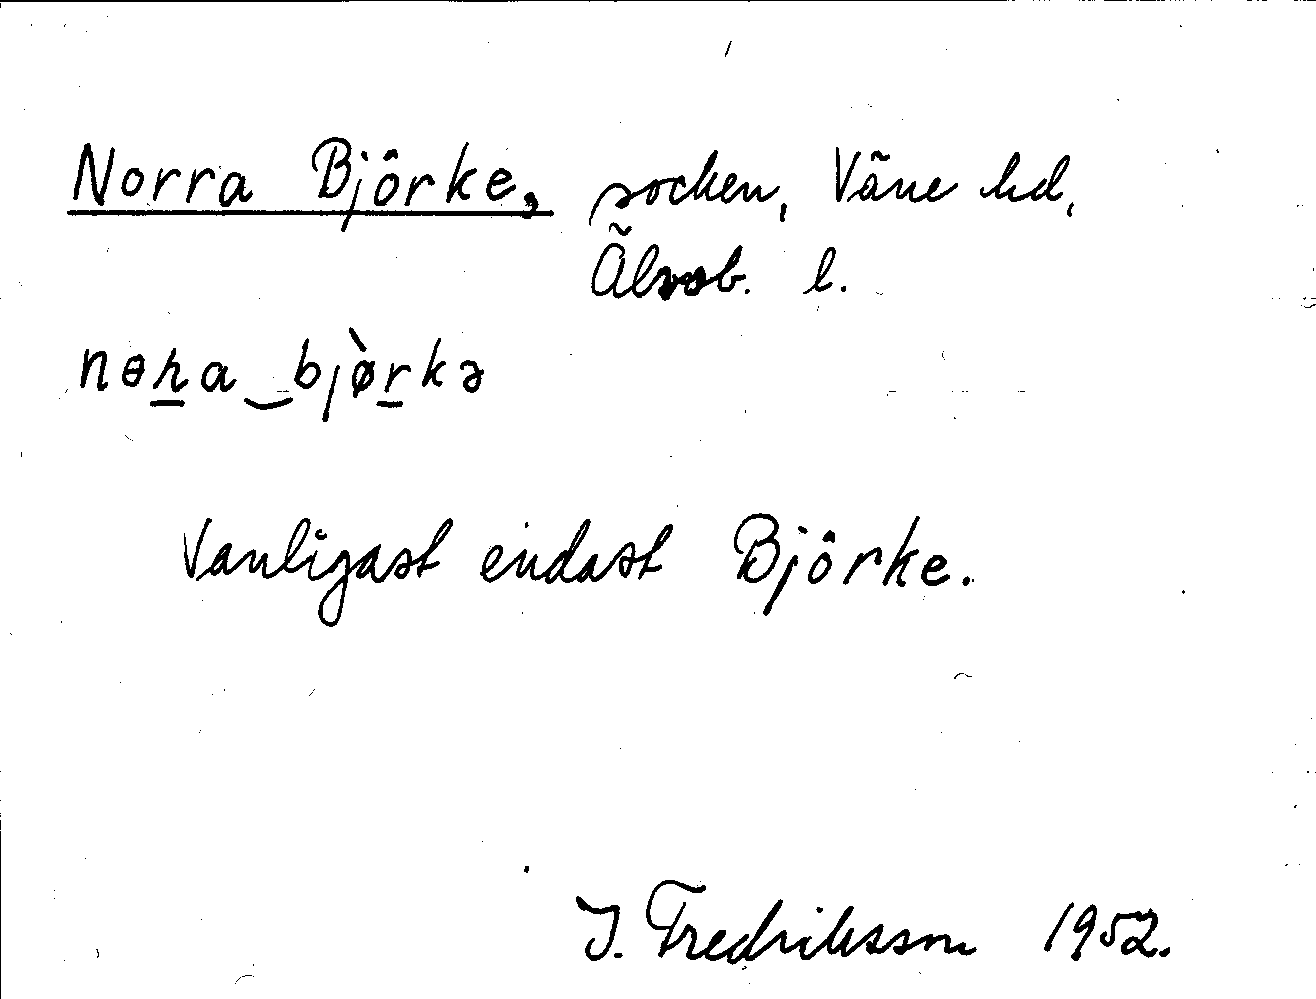 Norra Björke, socken, Väne hd,
Älvsb. l.
nɵɽa‿bjø̀rkə
Vanligast endast Björke.
I. Fredriksson 1952.